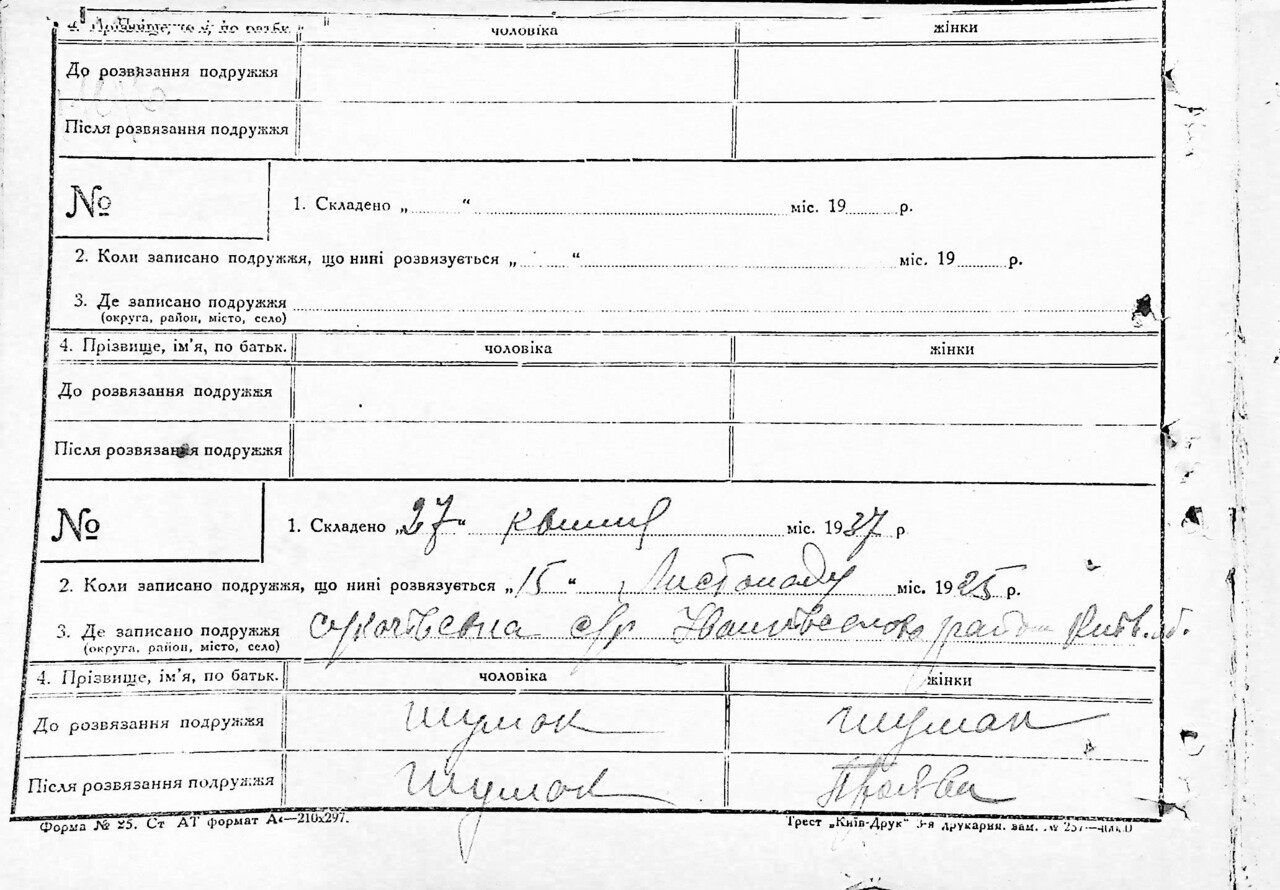 4. Прізвище, ім'я, по батьк. чоловіка жінки
До розвязання подружжя
Після розвязання подружжя
№ 1. Складено „ “ міс. 19 р.
2. Коли записано подружжя, що нині розвязується „ “ міс. 19 р.
3. Де записано подружжя
(округа, район, місто, село)
4. Прізвище, ім'я, по батьк. чоловіка жінки
До розвязання подружжя
Після розвязання подружжя
№ 1. Складено „27“ міс. 1937 р
2. Коли записано подружжя, що нині розвязується „15“ Листопаду міс. 1925 р.
3. Де записано подружжя район Київ. об.
(округа, район, місто, село)
4. Прізвище, ім'я, по батьк. чоловіка жінки
До розвязання подружжя Шумок Шумак
Після розвязання подружжя Шумок
Форма № 25. Ст АТ формат А₄—210х297. Трест „Київ-Друк“ друкарня. зам. № 257